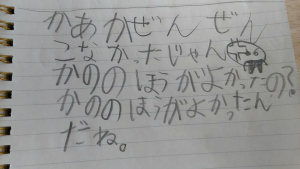 かあかぜんぜん
こなかったじゃん
かののほうがよかったの?
かののほうがよかったん
だね。